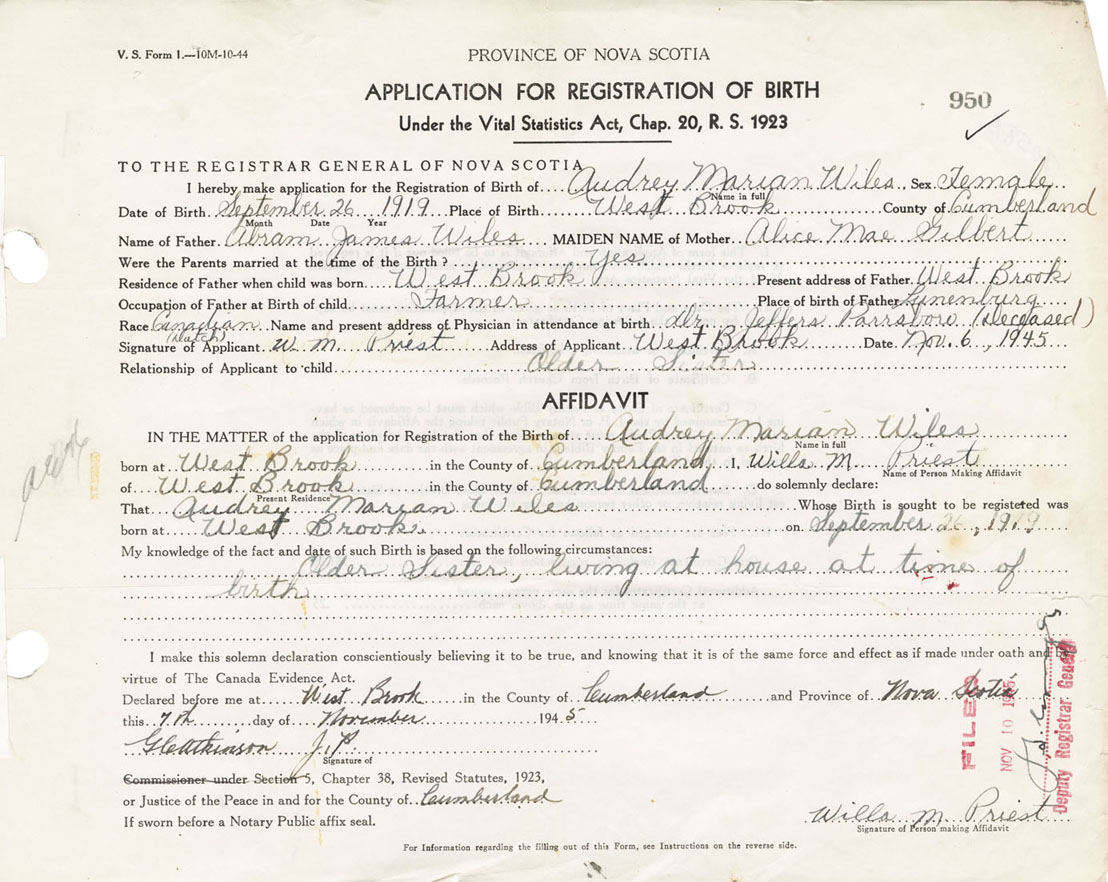 V. S. Form 1.—10M-10-44
PROVINCE OF NOVA SCOTIA
APPLICATION FOR REGISTRATION OF BIRTH
950
Under the Vital Statistics Act, Chap. 20, R. S. 1923
TO THE REGISTRAR GENERAL OF NOVA SCOTIA
I hereby make application for the Registration of Birth of Audrey Marian Wiles, Sex Female
Name in full
Date of Birth September 26 1919 Place of Birth West Brook County of Cumberland
Month Date Year
Name of Father Abram James Wiles MAIDEN NAME of Mother Alice Mae Gilbert
Were the Parents married at the time of the Birth? Yes
Residence of Father when child was born West Brook Present address of Father West Brook
Occupation of Father at Birth of child Farmer Place of birth of Father Lunenburg
Race Canadian Name and present address of Physician in attendance at birth Dr. Jeffers Parrsboro (deceased)
(Dutch)
Signature of Applicant W. M. Priest Address of Applicant West Brook Date Nov. 6, 1945
Relationship of Applicant to child Older Sister
AFFIDAVIT
IN THE MATTER of the application for Registration of the Birth of Audrey Marian Wiles
Name in full
born at West Brook in the County of Cumberland, I, Willa M Priest
Name of Person Making Affidavit
of West Brook in the County of Cumberland do solemnly declare:
Present Residence
That Audrey Marian Wiles Whose Birth is sought to be registered was
born at West Brook on September 26, 1919
My knowledge of the fact and date of such Birth is based on the following circumstances:
Older Sister, living at house at time of
birth
I make this solemn declaration conscientiously believing it to be true, and knowing that it is of the same force and effect as if made under oath and by
virtue of The Canada Evidence Act.
Declared before me at West Brook in the County of Cumberland and Province of Nova Scotia
this 7th day of November 1945
J.P.
Signature of
Commissioner under Section 5, Chapter 38, Revised Statutes, 1923,
or Justice of the Peace in and for the County of Cumberland
If sworn before a Notary Public affix seal.
FILED
NOV 10 1945
Deputy Registrar General
Willa M Priest
Signature of Person making Affidavit
For Information regarding the filling out of this Form, see Instructions on the reverse side.